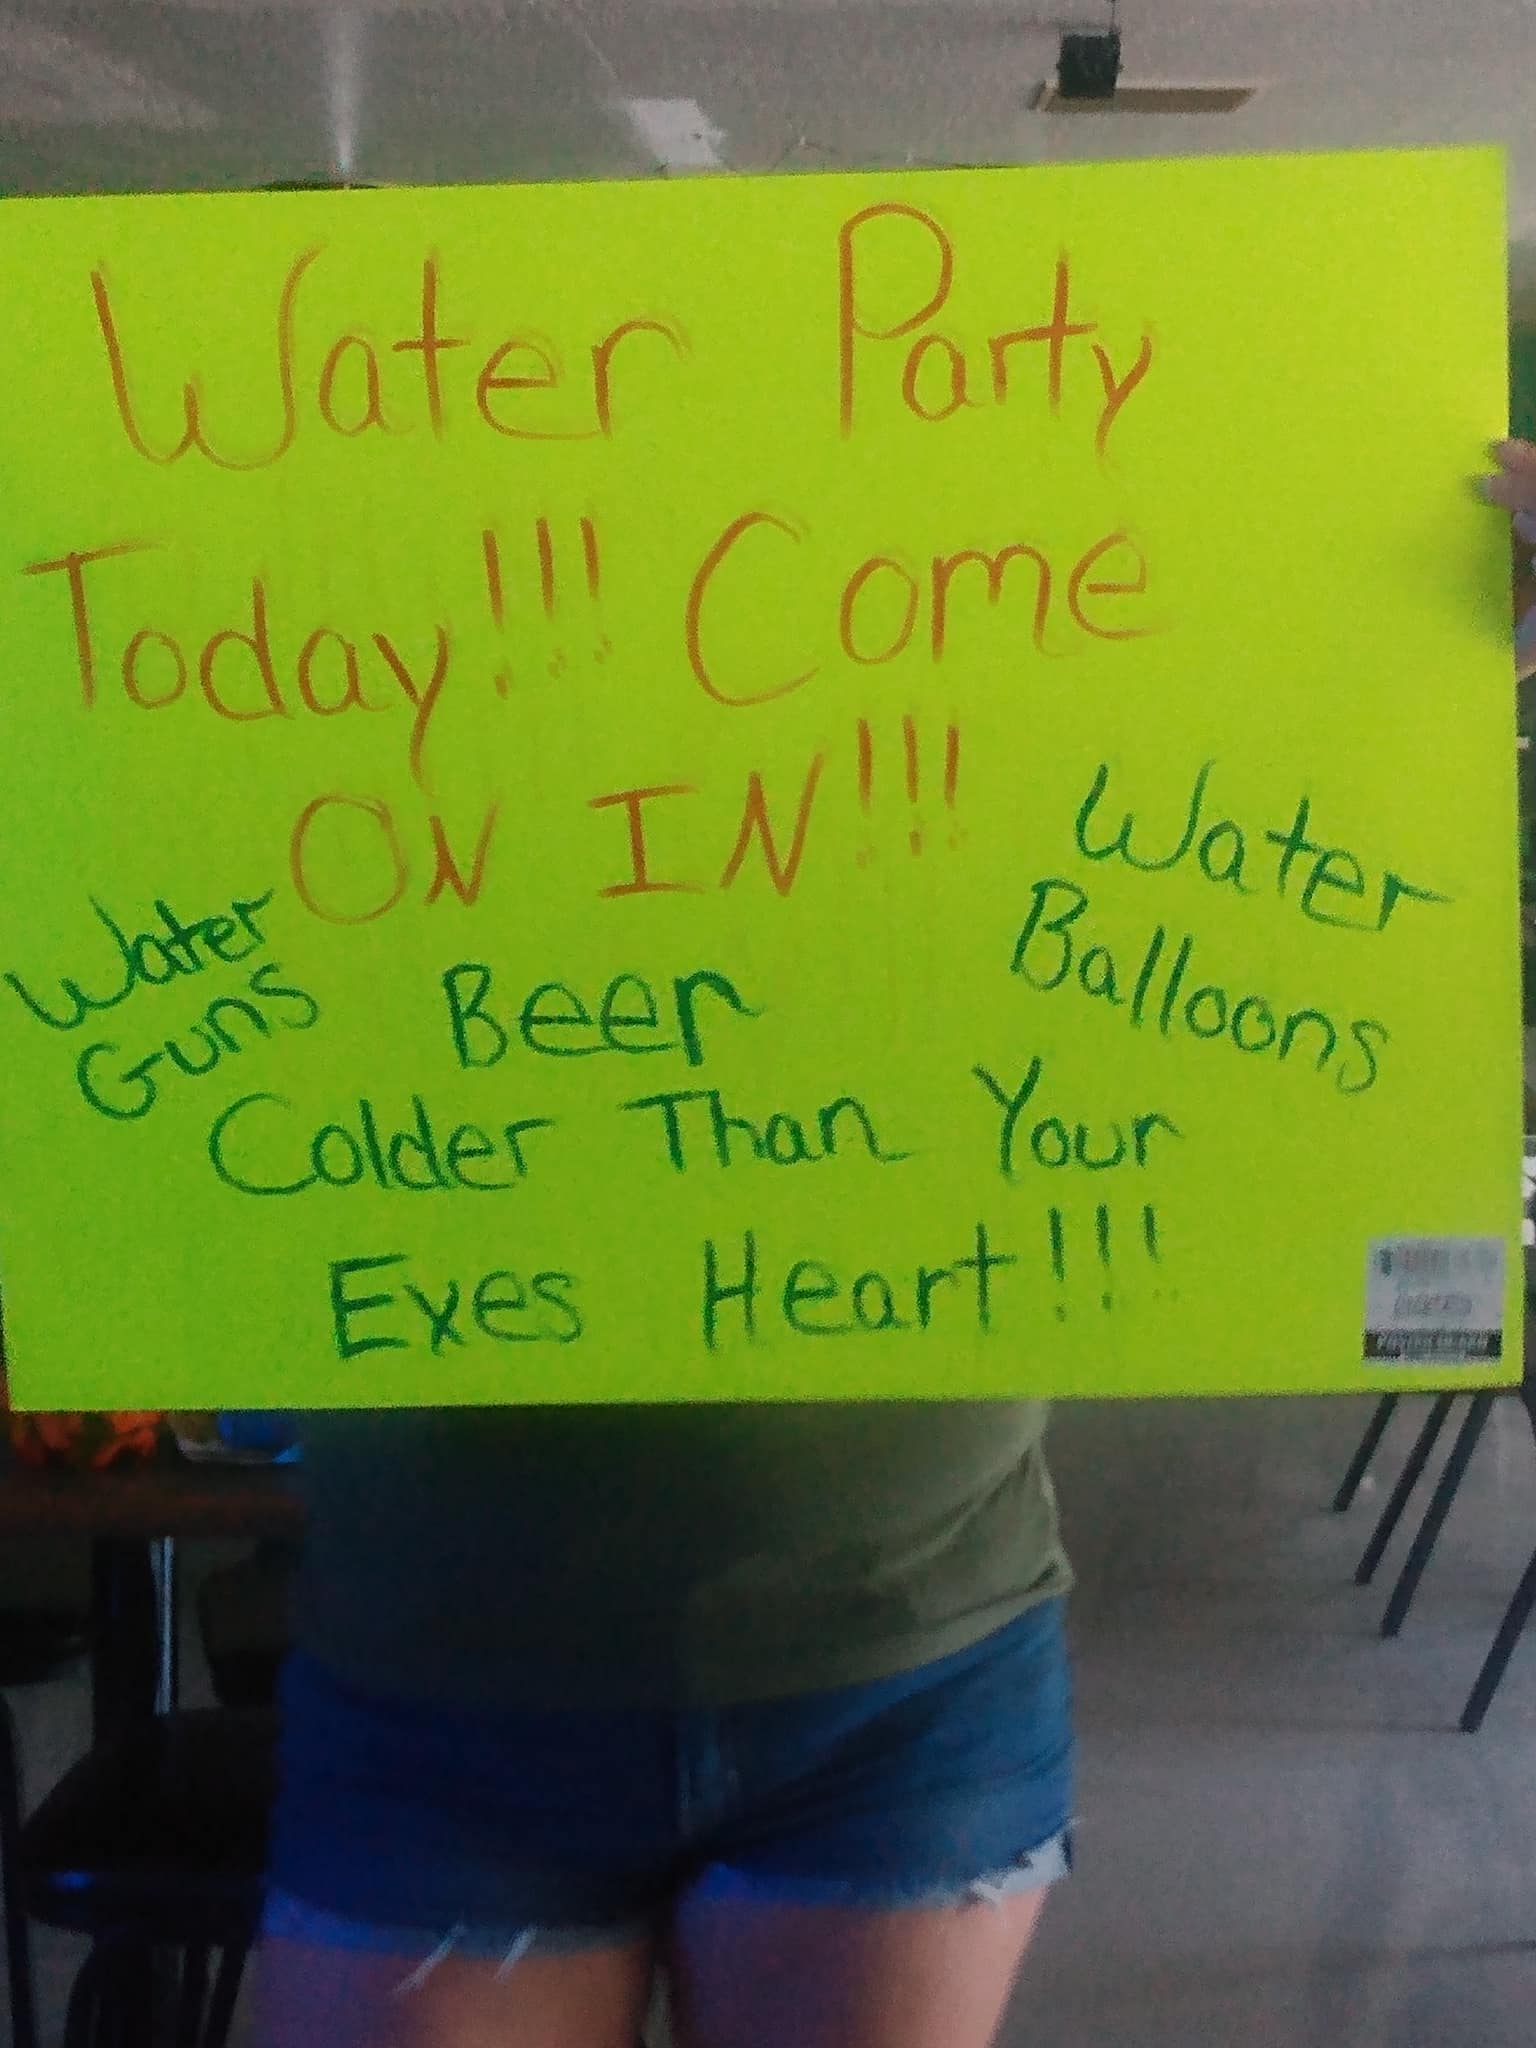 Water Party
Today!!! Come
ON IN!!!
Water
Guns
Water
Balloons
Beer
Colder Than Your
Exes Heart!!!